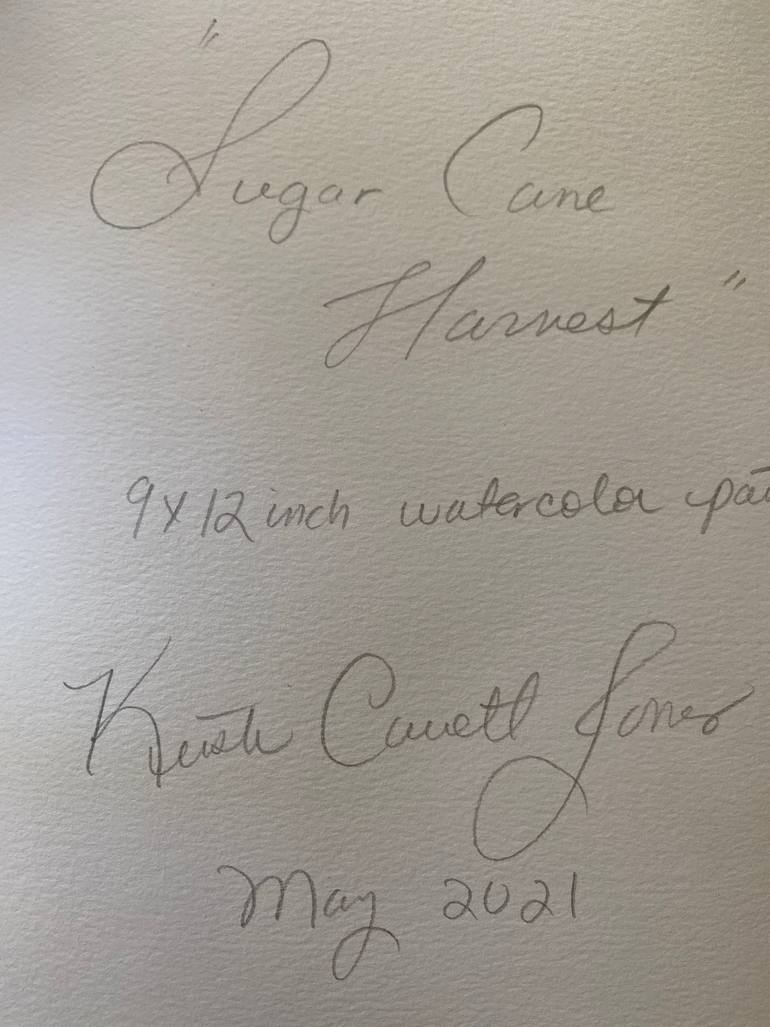 "Sugar Cane
Harvest"
9x12 inch watercolor pai
Kristi Cavett Jones
May 2021